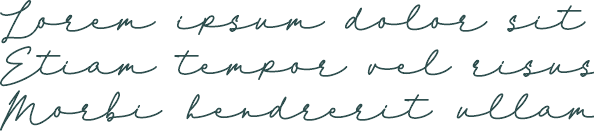 Lorem ipsum dolor sit
Etiam tempor vel risus
Morbi hendrerit ullam